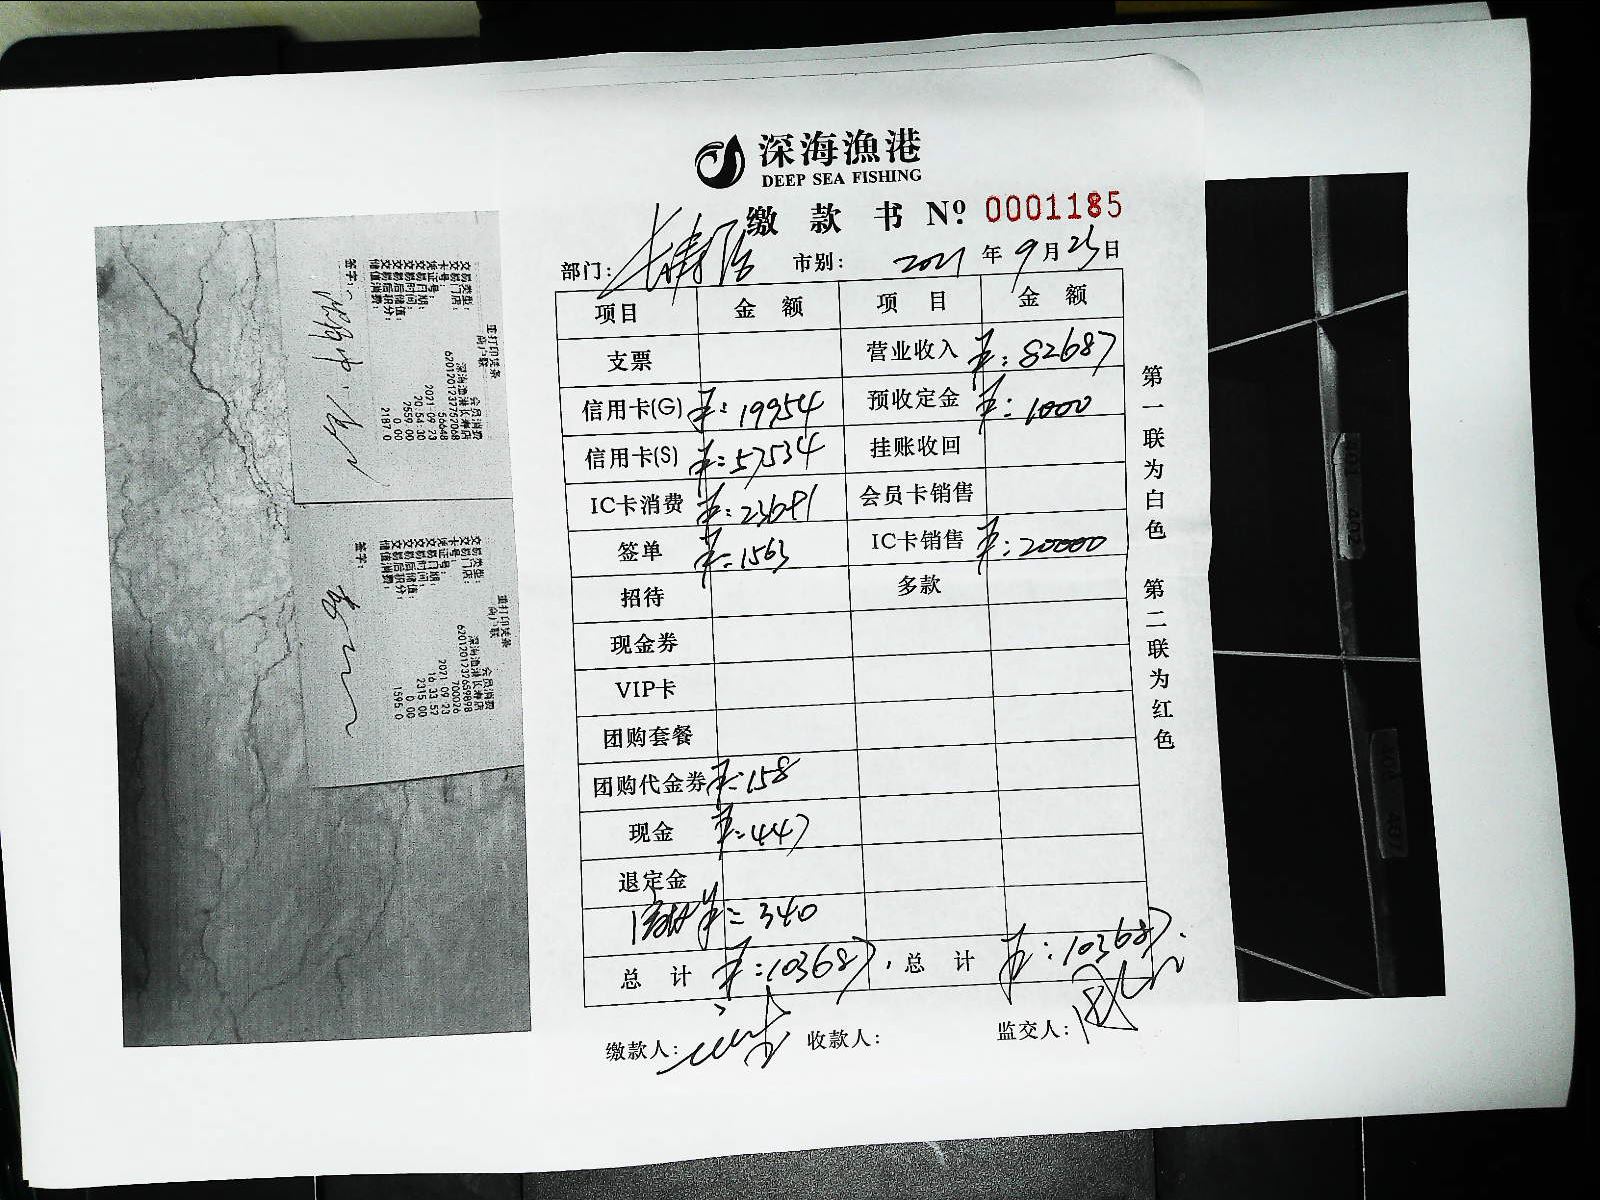 深海漁港
DEEP SEA FISHING
缴款书 № 0001185
部门: 长寿店 市别: 2021年9月23日
项目 金额 项目 金额
支票 营业收入 ¥:82687
信用卡(G) ¥:19954 预收定金 ¥:1000
信用卡(S) ¥:57534 挂账收回
IC卡消费 ¥:23691 会员卡销售
签单 ¥:1563 IC卡销售 ¥:20000
招待 多款
现金券
VIP卡
团购套餐
团购代金券 ¥:158
现金 ¥:447
退定金
¥:340
总计 ¥:103687 总计 ¥:103687.
缴款人: 收款人: 监交人:
第一联为白色 第二联为红色
重打印凭条
商户联
交易类型: 会员消费
交易门店: 深海渔港长寿店
卡号: 6201201237752068
凭证号: 56648
交易日期: 2021-09-23
交易时间: 20:54:30
交易后储值: 7559.00
交易后积分: 0.00
储值消费: 2187.0
签字:
重打印凭条
商户联
交易类型: 会员消费
交易门店: 深海渔港长寿店
卡号: 6201201237659898
凭证号: 700026
交易日期: 2021-09-23
交易时间: 16:33:52
交易后储值: 2315.00
交易后积分: 0.00
储值消费: 1595.0
签字: